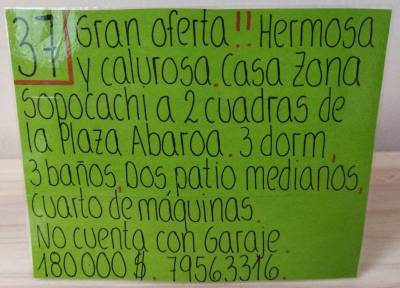 37 Gran oferta!! Hermosa
y calurosa. Casa Zona
Sopocachi a 2 cuadras de
la Plaza Abaroa. 3 dorm,
3 baños, Dos patio medianos,
cuarto de máquinas.
No cuenta con Garaje.
180000 $. 79563316.